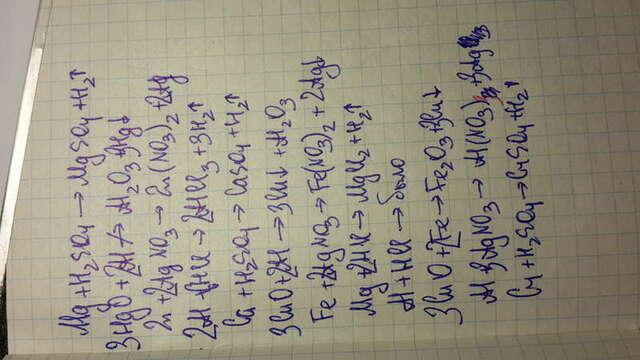 Mg + H2SO4 → MgSO4 + H2↑
3HgO + 2Al → Al2O3 + 3Hg↓
Zn + 2AgNO3 → Zn(NO3)2 + 2Ag
2Al + 6HCl → 2AlCl3 + 3H2↑
Ca + H2SO4 → CaSO4 + H2↑
3CuO + 2Al → 3Cu↓ + Al2O3
Fe + 2AgNO3 → Fe(NO3)2 + 2Ag↓
Mg + 2HCl → MgCl2 + H2↑
Al + HCl → было
3CuO + 2Fe → Fe2O3 + 3Cu↓
Al 3AgNO3 → Al(NO3)3 + 3Ag
Cr + H2SO4 → CrSO4 + H2↑